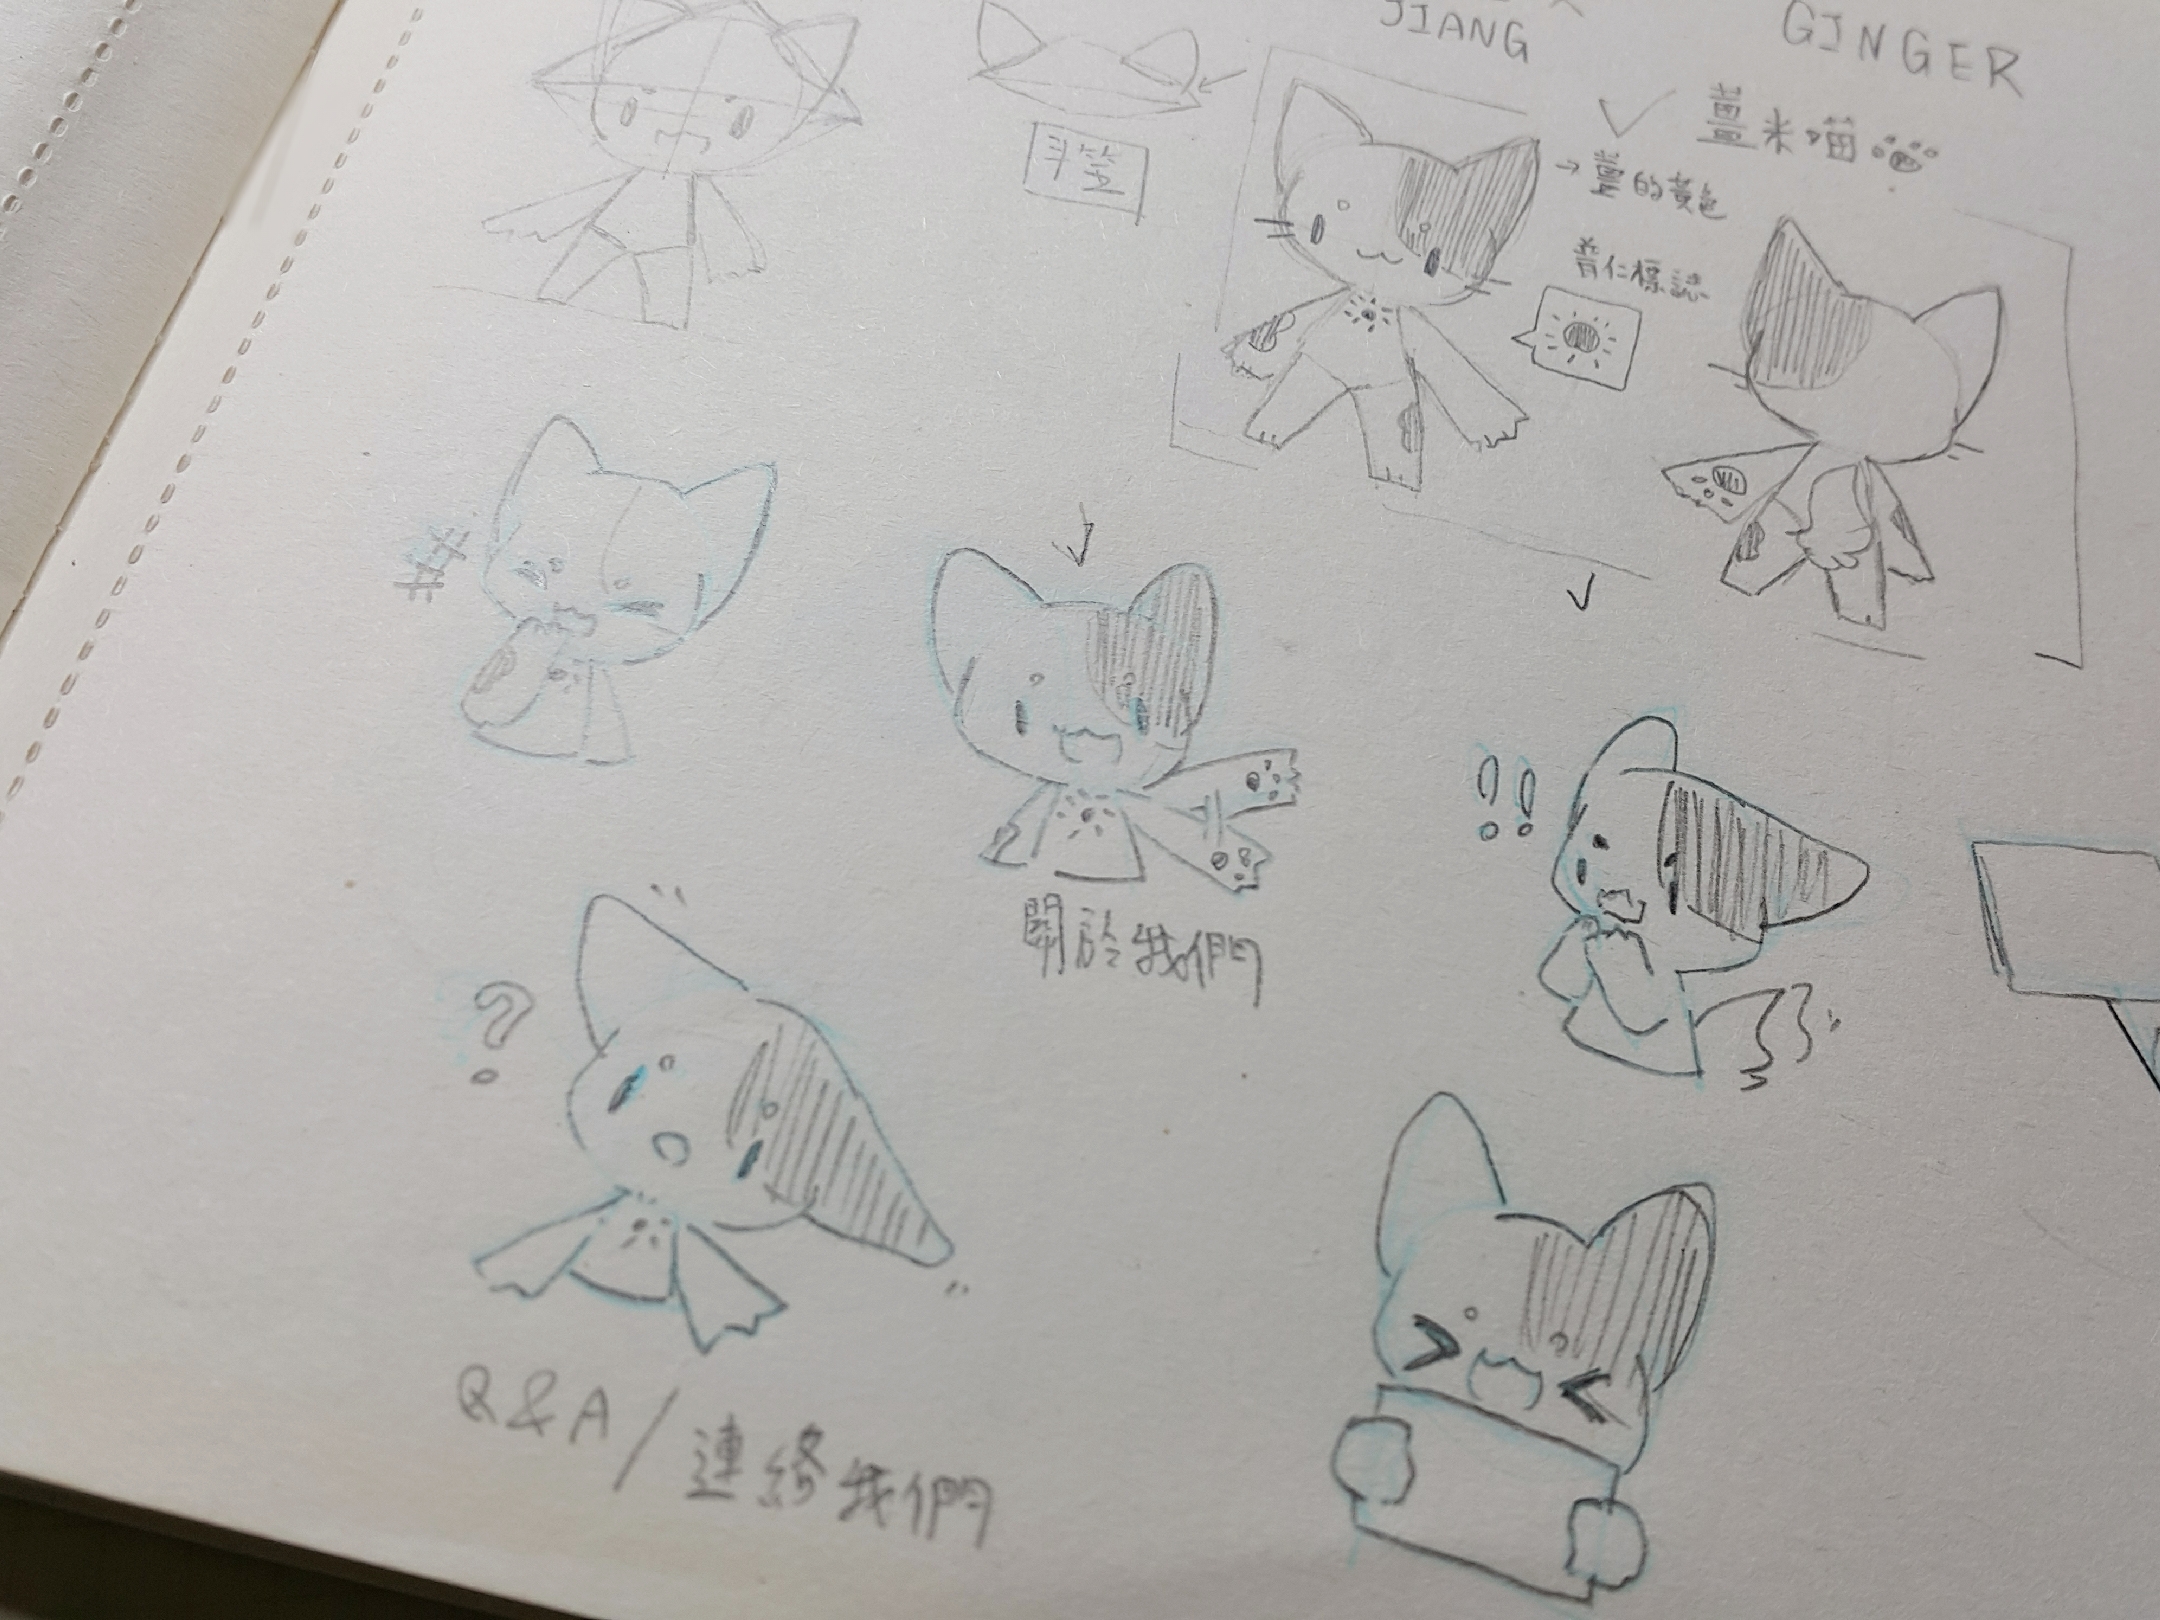 JIANG
GINGER
薑米喵
斗笠
→薑的黃色
普仁標誌
!!
開於我們
?
Q&A/連絡我們